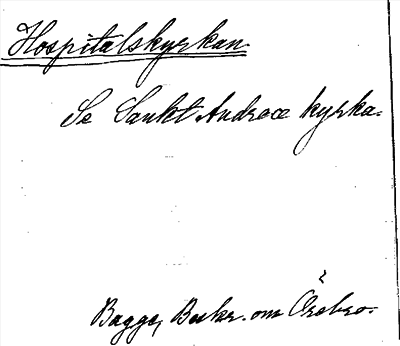 Hospitalskyrkan.
Se Sankt Andreæ kyrka.
Bagge, Beskr. om Örebro.